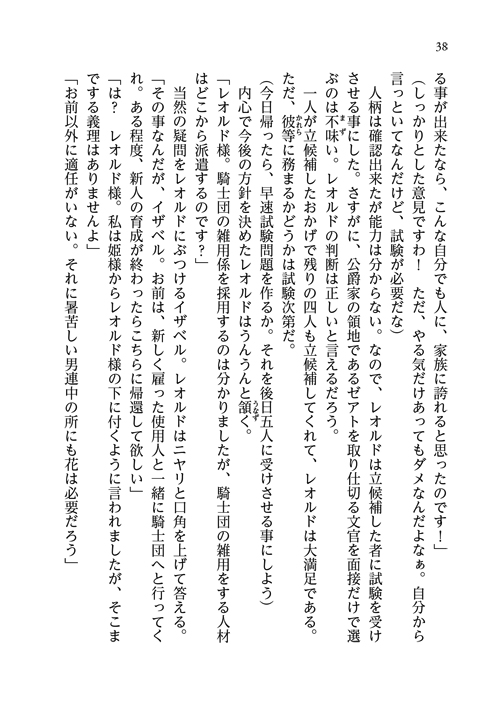 38
る事が出来たなら、こんな自分でも人に、家族に誇れると思ったのです！」
（しっかりとした意見ですわ！　ただ、やる気だけあってもダメなんだよなぁ。自分から
言っといてなんだけど、試験が必要だな）
　人柄は確認出来たが能力は分からない。なので、レオルドは立候補した者に試験を受け
させる事にした。さすがに、公爵家の領地であるゼアトを取り仕切る文官を面接だけで選
ぶのは不味い。レオルドの判断は正しいと言えるだろう。
まず
　一人が立候補したおかげで残りの四人も立候補してくれて、レオルドは大満足である。
ただ、彼等に務まるかどうかは試験次第だ。
かれら
（今日帰ったら、早速試験問題を作るか。それを後日五人に受けさせる事にしよう）
　内心で今後の方針を決めたレオルドはうんうんと頷く。
うなず
「レオルド様。騎士団の雑用係を採用するのは分かりましたが、騎士団の雑用をする人材
はどこから派遣するのです？」
　当然の疑問をレオルドにぶつけるイザベル。レオルドはニヤリと口角を上げて答える。
「その事なんだが、イザベル。お前は、新しく雇った使用人と一緒に騎士団へと行ってく
れ。ある程度、新人の育成が終わったらこちらに帰還して欲しい」
「は？　レオルド様。私は姫様からレオルド様の下に付くように言われましたが、そこま
でする義理はありませんよ」
「お前以外に適任がいない。それに暑苦しい男連中の所にも花は必要だろう」